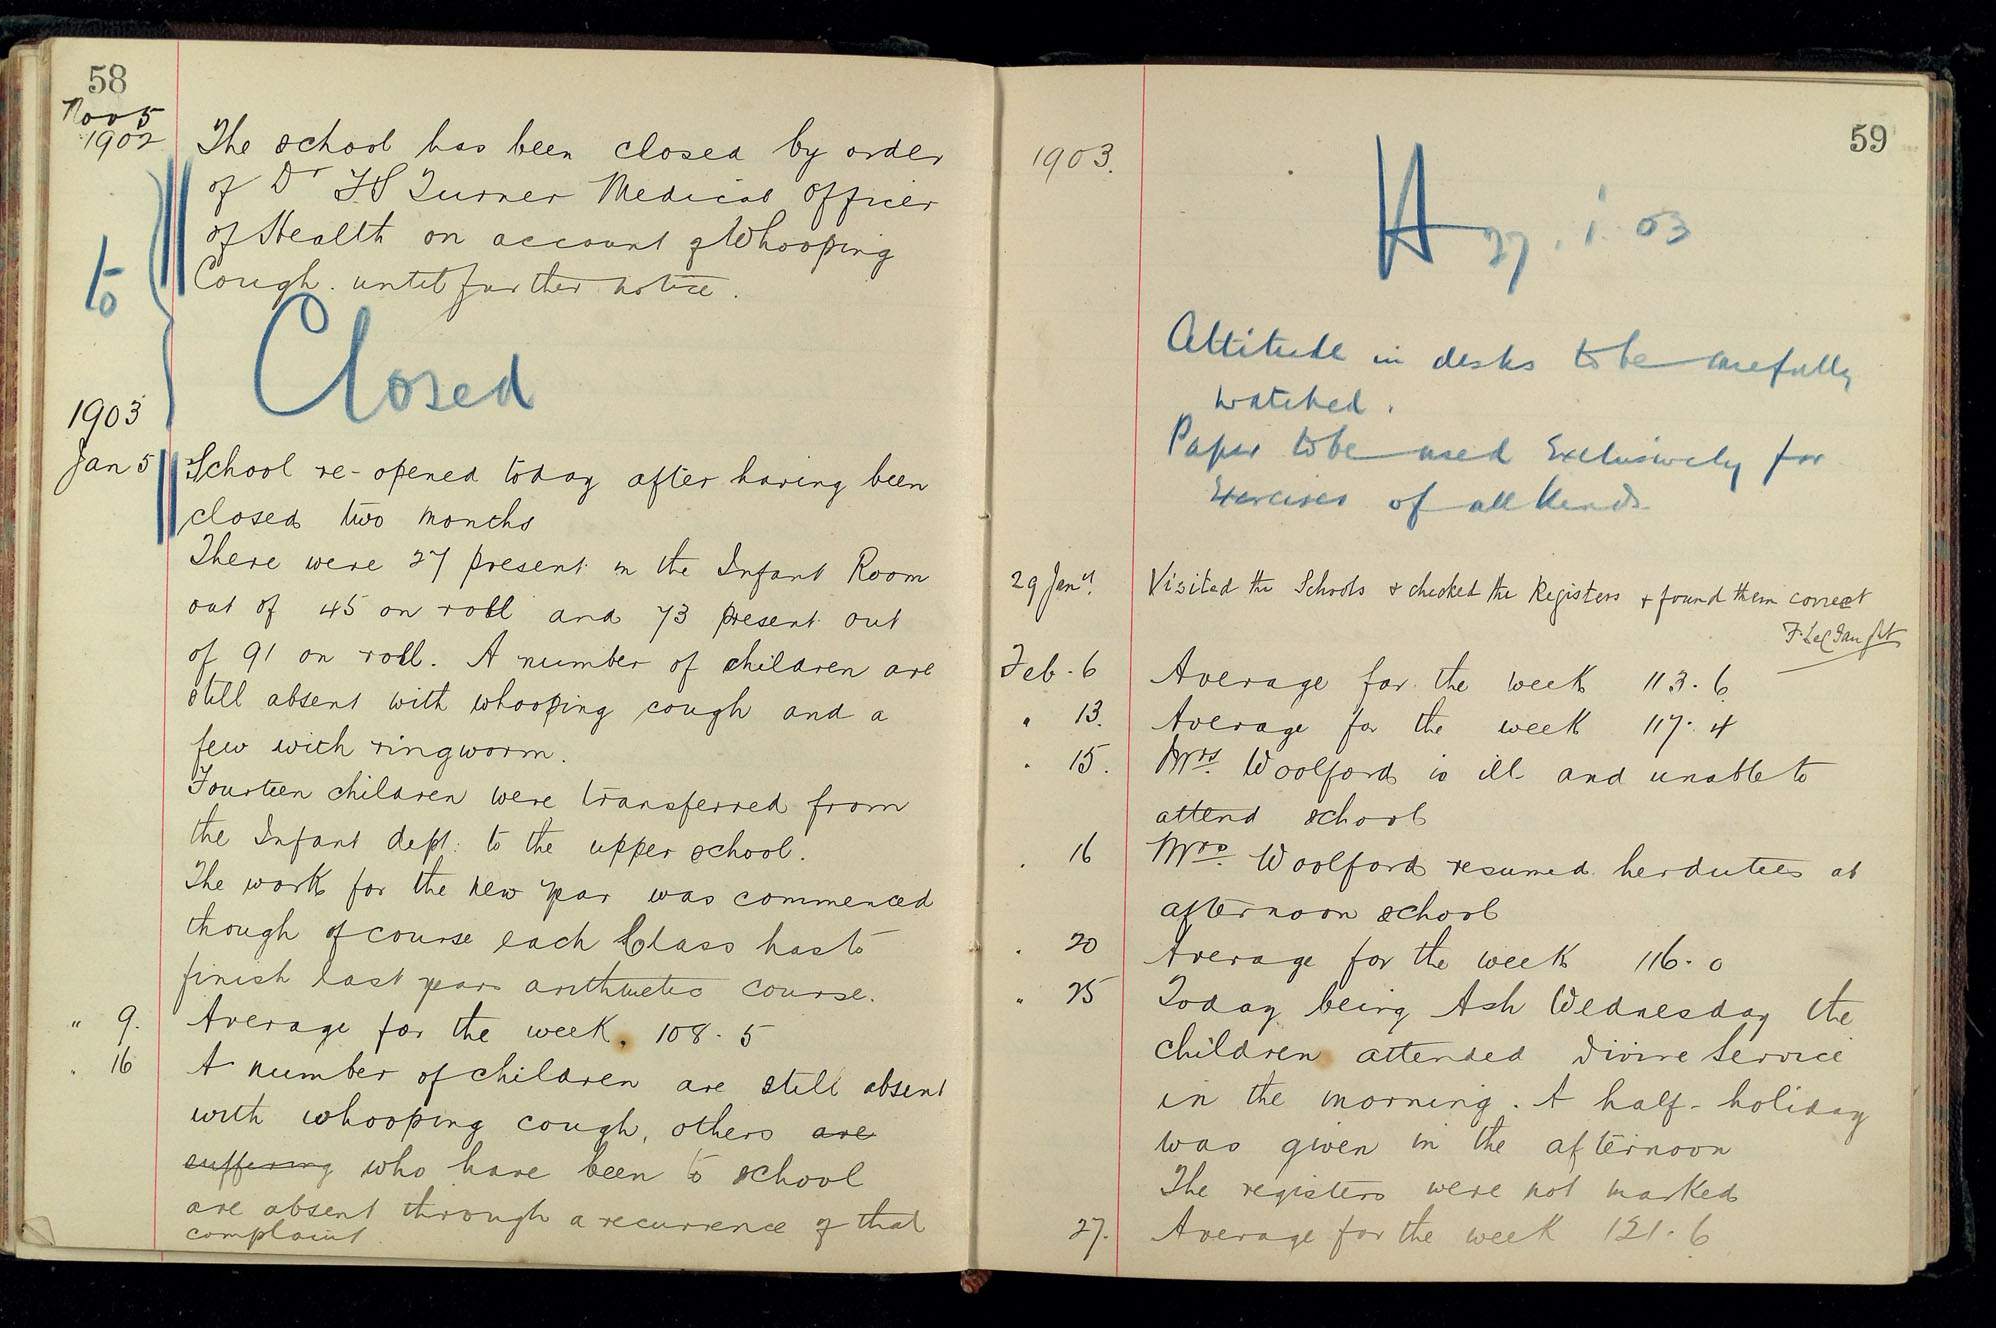 58
Nov 5
1902
The school has been closed by order
of Dr F S Turner Medical Officer
of Health on account of Whooping
Cough. until further notice.
to
Closed
1903
Jan 5
School re-opened today after having been
closed two months
There were 27 present in the Infant Room
out of 45 on roll and 73 present out
of 91 on roll. A number of children are
still absent with whooping cough and a
few with ringworm.
Fourteen children were transferred from
the Infant dept: to the upper school.
The work for the new year was commenced
though of course each Class has to
finish last years arithmetic course.
" 9. Average for the week. 108.5
" 16 A number of children are still absent
with whooping cough, others are
suffering who have been to school
are absent through a recurrence of that
complaint.
59
1903.
27.1.03
Attitude in desks to be carefully
watched.
Paper to be used Exclusively for
Exercises of all kinds.
29 Jany. Visited the Schools & checked the Registers & found them correct
Feb. 6 Average for the week 113.6
" 13. Average for the week 117.4
" 15. Mrs. Woolford is ill and unable to
attend school
" 16 Mrs. Woolford resumed her duties at
afternoon school
" 20 Average for the week 116.0
" 25 Today being Ash Wednesday the
children attended divine Service
in the morning. A half-holiday
was given in the afternoon
The registers were not marked
27. Average for the week 121.6